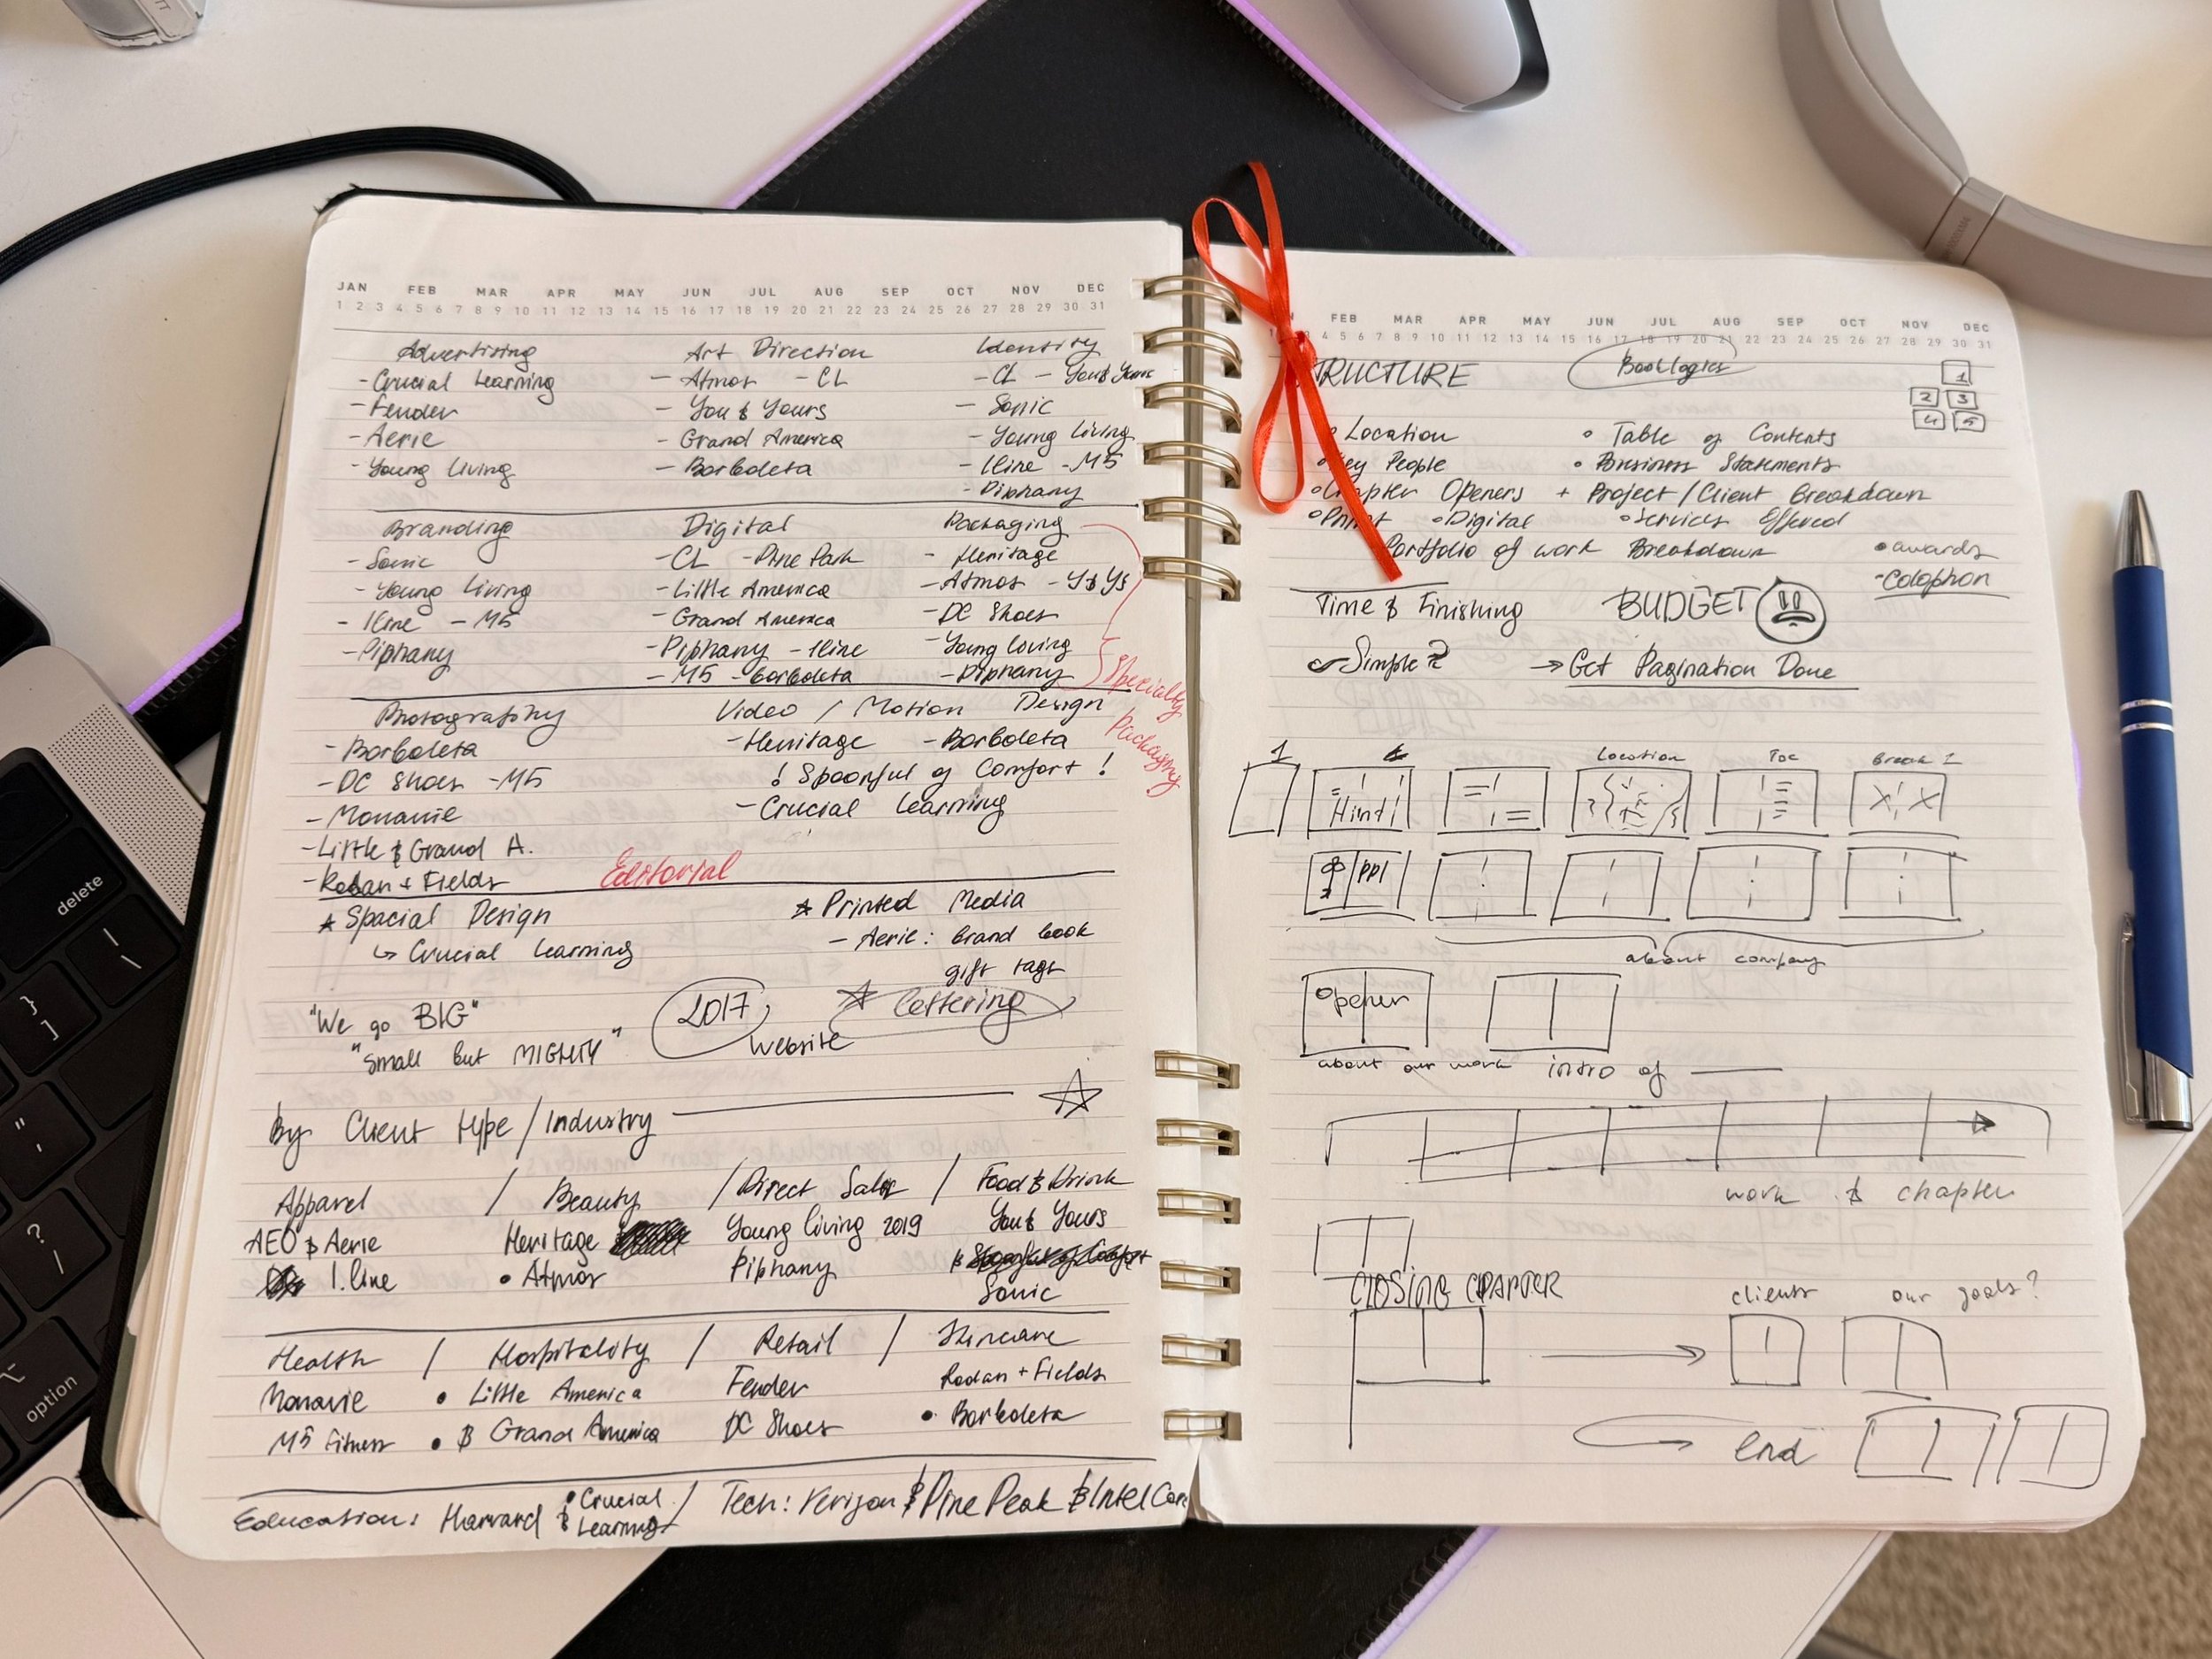 JAN FEB MAR APR MAY JUN JUL AUG SEP OCT NOV DEC
1 2 3 4 5 6 7 8 9 10 11 12 13 14 15 16 17 18 19 20 21 22 23 24 25 26 27 28 29 30 31
Advertising Art Direction Identity
- Crucial Learning - Atmos - CL - CL - You & Yours
- Fender - You & Yours - Sonic
- Aerie - Grand America - Young Living
- Young Living - Borboleta - 1line - M5
- Piphany
Branding Digital Packaging
- Sonic - CL - Pine Park - Heritage
- Young Living - Little America - Atmos - Y&Ys
- 1line - M5 - Grand America - DC Shoes
- Piphany - Piphany - 1line - Young Living
- M5 - Borboleta - Piphany
Specialty
Packaging
Photography Video / Motion Design
- Borboleta - Heritage - Borboleta
- DC Shoes - M5 ! Spoonful of Comfort !
- Monavie - Crucial Learning
- Little & Grand A.
- Rodan + Fields Editorial
★ Spacial Design ★ Printed Media
↳ Crucial Learning - Aerie: brand book
gift tags
"We go BIG" 2017 ★ Lettering
"Small but MIGHTY" website
By Client type / Industry ☆
Apparel / Beauty / Direct Sales / Food & Drink
AEO & Aerie Heritage Young Living 2019 You & Yours
1.line • Atmos Piphany Spoonful of Comfort
Sonic
Health / Hospitality / Retail / Skincare
Monavie • Little America Fender Rodan + Fields
M5 Fitness • & Grand America DC Shoes • Borboleta
Education: Harvard & • Crucial Learning / Tech: Verizon & Pine Peak & Intel
FEB MAR APR MAY JUN JUL AUG SEP OCT NOV DEC
4 5 6 7 8 9 10 11 12 13 14 15 16 17 18 19 20 21 22 23 24 25 26 27 28 29 30 31
TRUCTURE Booklogics 1
2 3
4 5
• Location • Table of Contents
Key People • Business Statements
• Chapter Openers + Project/Client Breakdown
• Print • Digital • Services Offered
Portfolio of work Breakdown • awards
- Colophon
Time & Finishing BUDGET
Simple? → Get Pagination Done
1 Location TOC Break 1
X X
PPl
about company
Opener
about our work intro of
work & chapter
CLOSING CHAPTER clients our goals?
End
delete
option